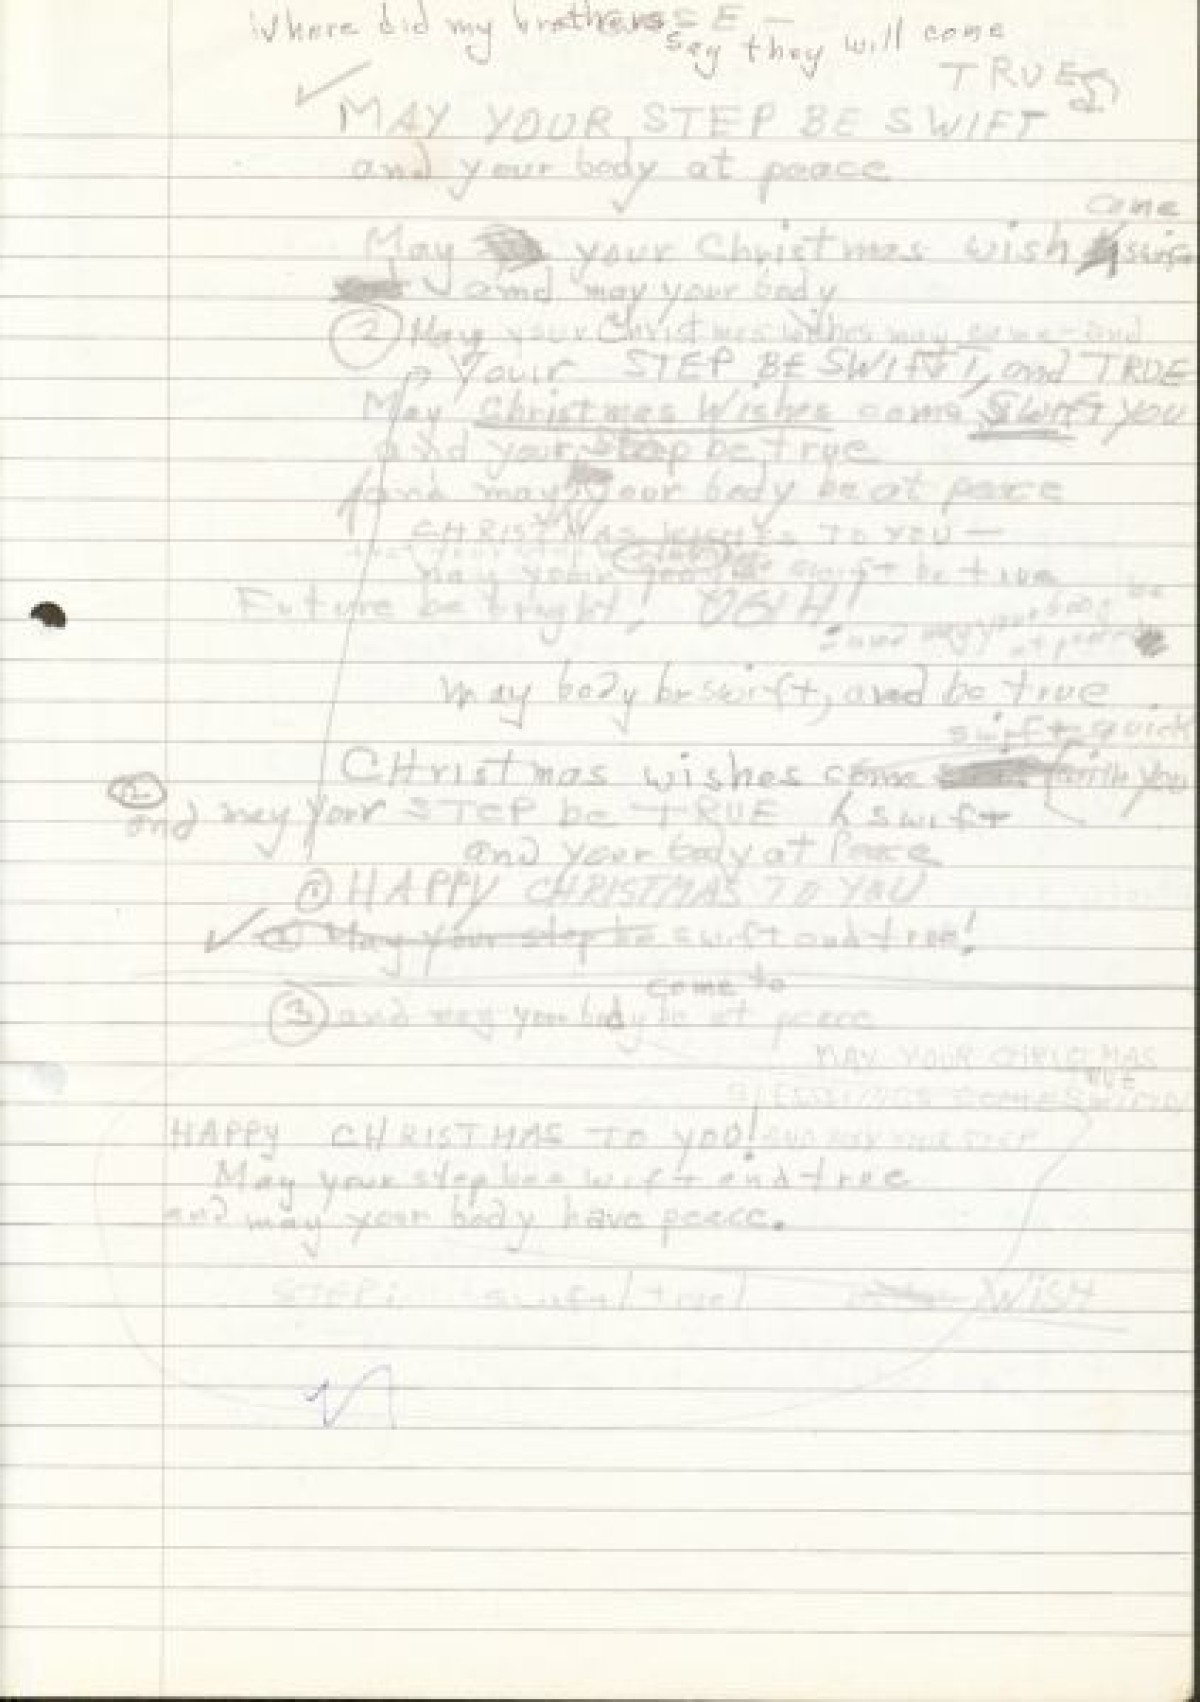 Where did my brothers SE —
say they will come
TRUE
MAY YOUR STEP BE SWIFT
and your body at peace
come
May your Christmas wish
and may your body
② May your Christmas wishes may come and
Your STEP BE SWIFT, and TRUE
May Christmas Wishes come SWIFT YOU
and your step be true
and may your body be at peace
CHRISTMAS WISHES TO YOU —
may your swift be true
Future be bright!
and may your body be
at peace
may body be swift, and be true
swift quick
CHristmas wishes come with you
②
and may your STEP be TRUE & swift
and your body at Peace
① HAPPY CHRISTMAS TO YOU
① May your step be swift and true!
come to
③ and may your body be at peace
MAY YOUR CHRISTMAS
BLESSINGS COME
HAPPY CHRISTMAS TO YOU! AND MAY YOUR STEP
May your step bee swift and true
and may your body have peace.
STEP: swift / true / WISH